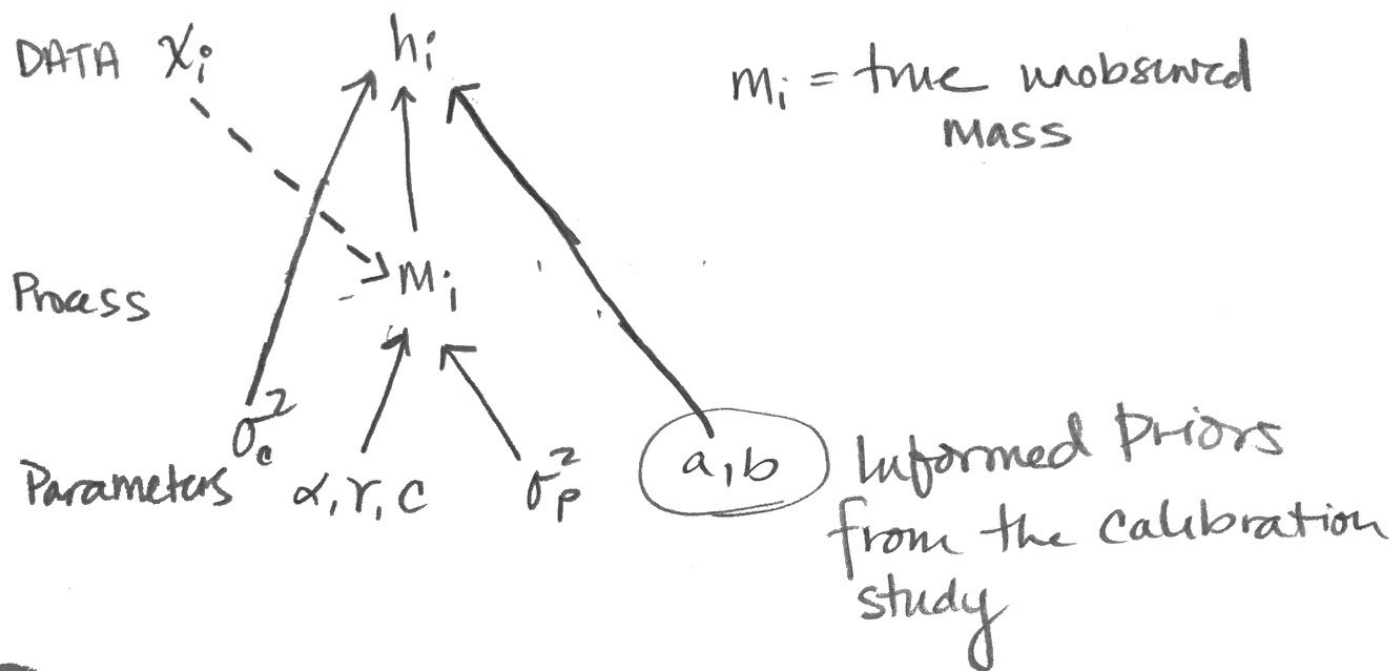 DATA xᵢ hᵢ
mᵢ = true unobserved
mass
Process mᵢ
Parameters σ²c α, γ, c σ²p a, b
Informed Priors
from the calibration
study